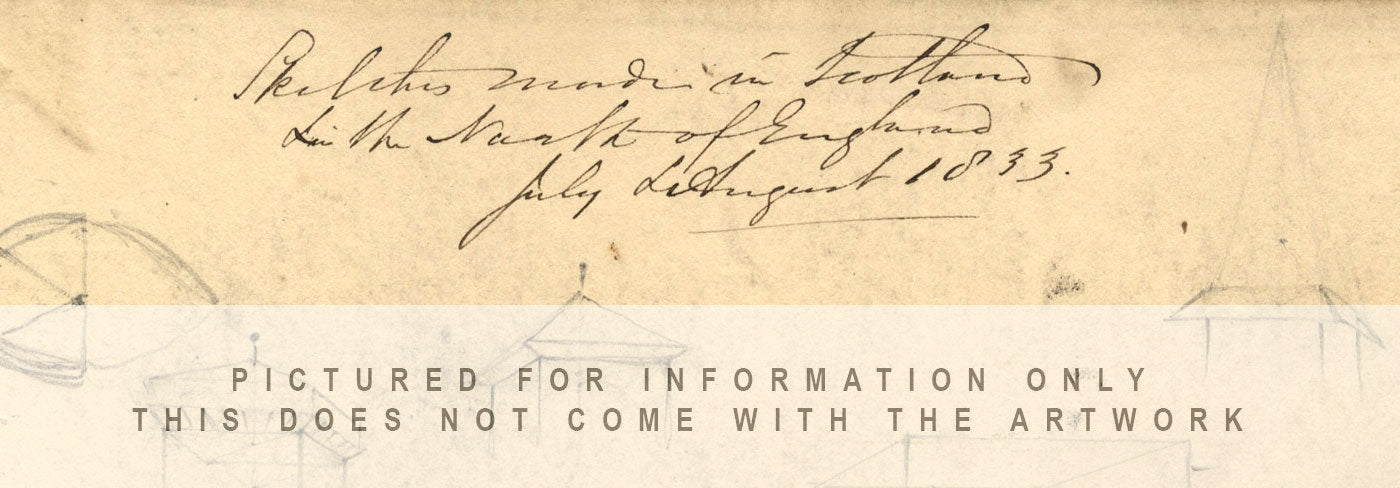 Sketches made in Scotland
& in the North of England
July & August 1833.
PICTURED FOR INFORMATION ONLY
THIS DOES NOT COME WITH THE ARTWORK